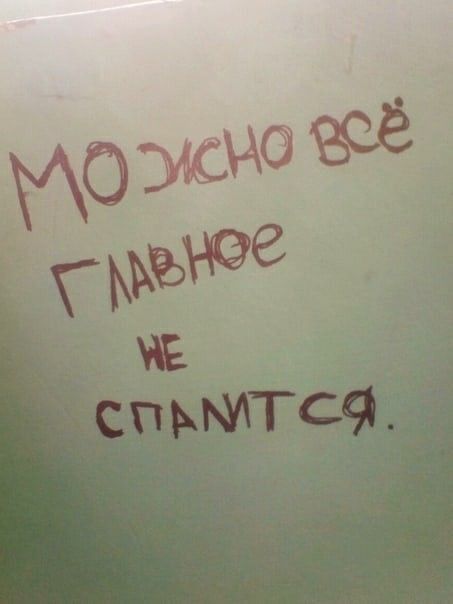 МОЖНО ВСё
ГЛАВНОе
НЕ
СПАЛИТСЯ.